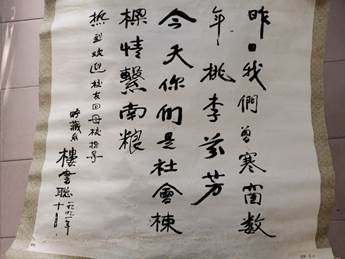 昨日我們曾寒窗数
年桃李芬芳
今天你們是社會棟
樑情繫南粮
热烈欢迎校友回母校指导
贮藏系
樓
一九九